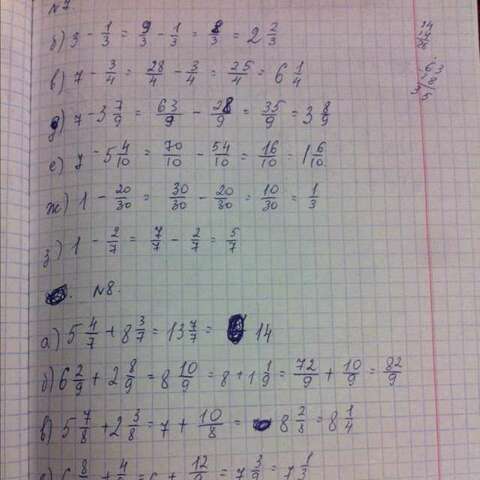 б) 3 - 1/3 = 9/3 - 1/3 = 8/3 = 2 2/3
в) 7 - 3/4 = 28/4 - 3/4 = 25/4 = 6 1/4
д) 7 - 3 7/9 = 63/9 - 28/9 = 35/9 = 3 8/9
е) 7 - 5 4/10 = 70/10 - 54/10 = 16/10 = 1 6/10
ж) 1 - 20/30 = 30/30 - 20/30 = 10/30 = 1/3
з) 1 - 2/7 = 7/7 - 2/7 = 5/7
№8.
а) 5 4/7 + 8 3/7 = 13 7/7 = 14
б) 6 2/9 + 2 8/9 = 8 10/9 = 8 + 1 1/9 = 72/9 + 10/9 = 82/9
в) 5 7/8 + 2 3/8 = 7 + 10/8 = 8 2/8 = 8 1/4